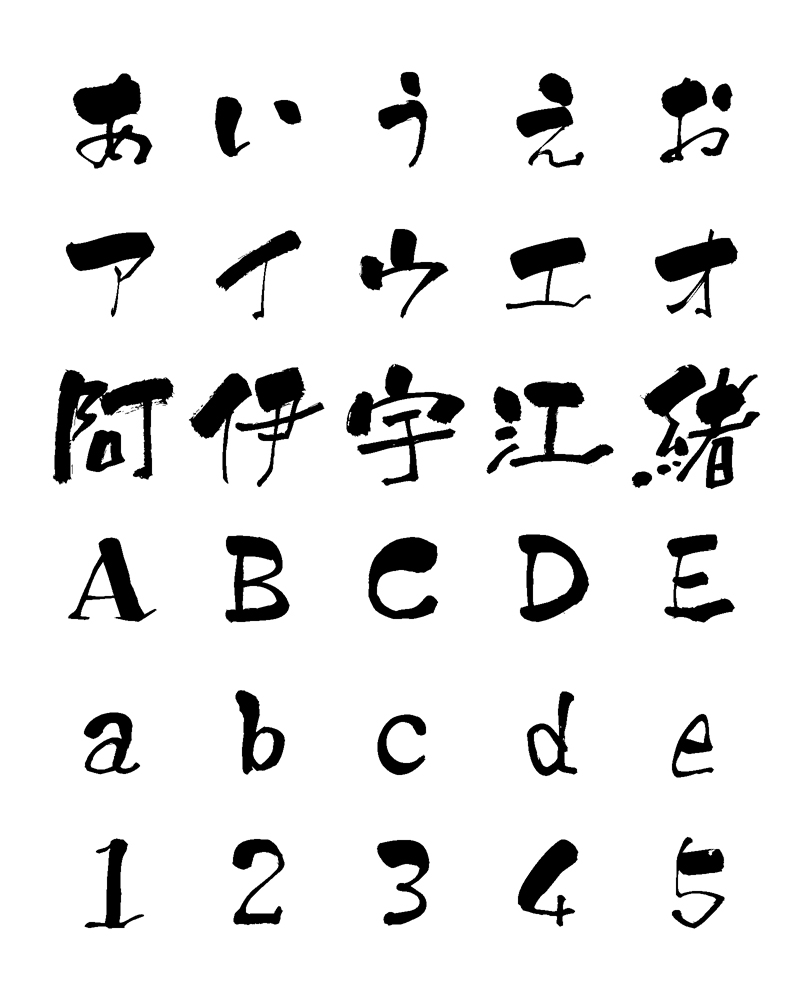 あいうえお
アイウエオ
阿伊宇江緒
ABCDE
abcde
12345